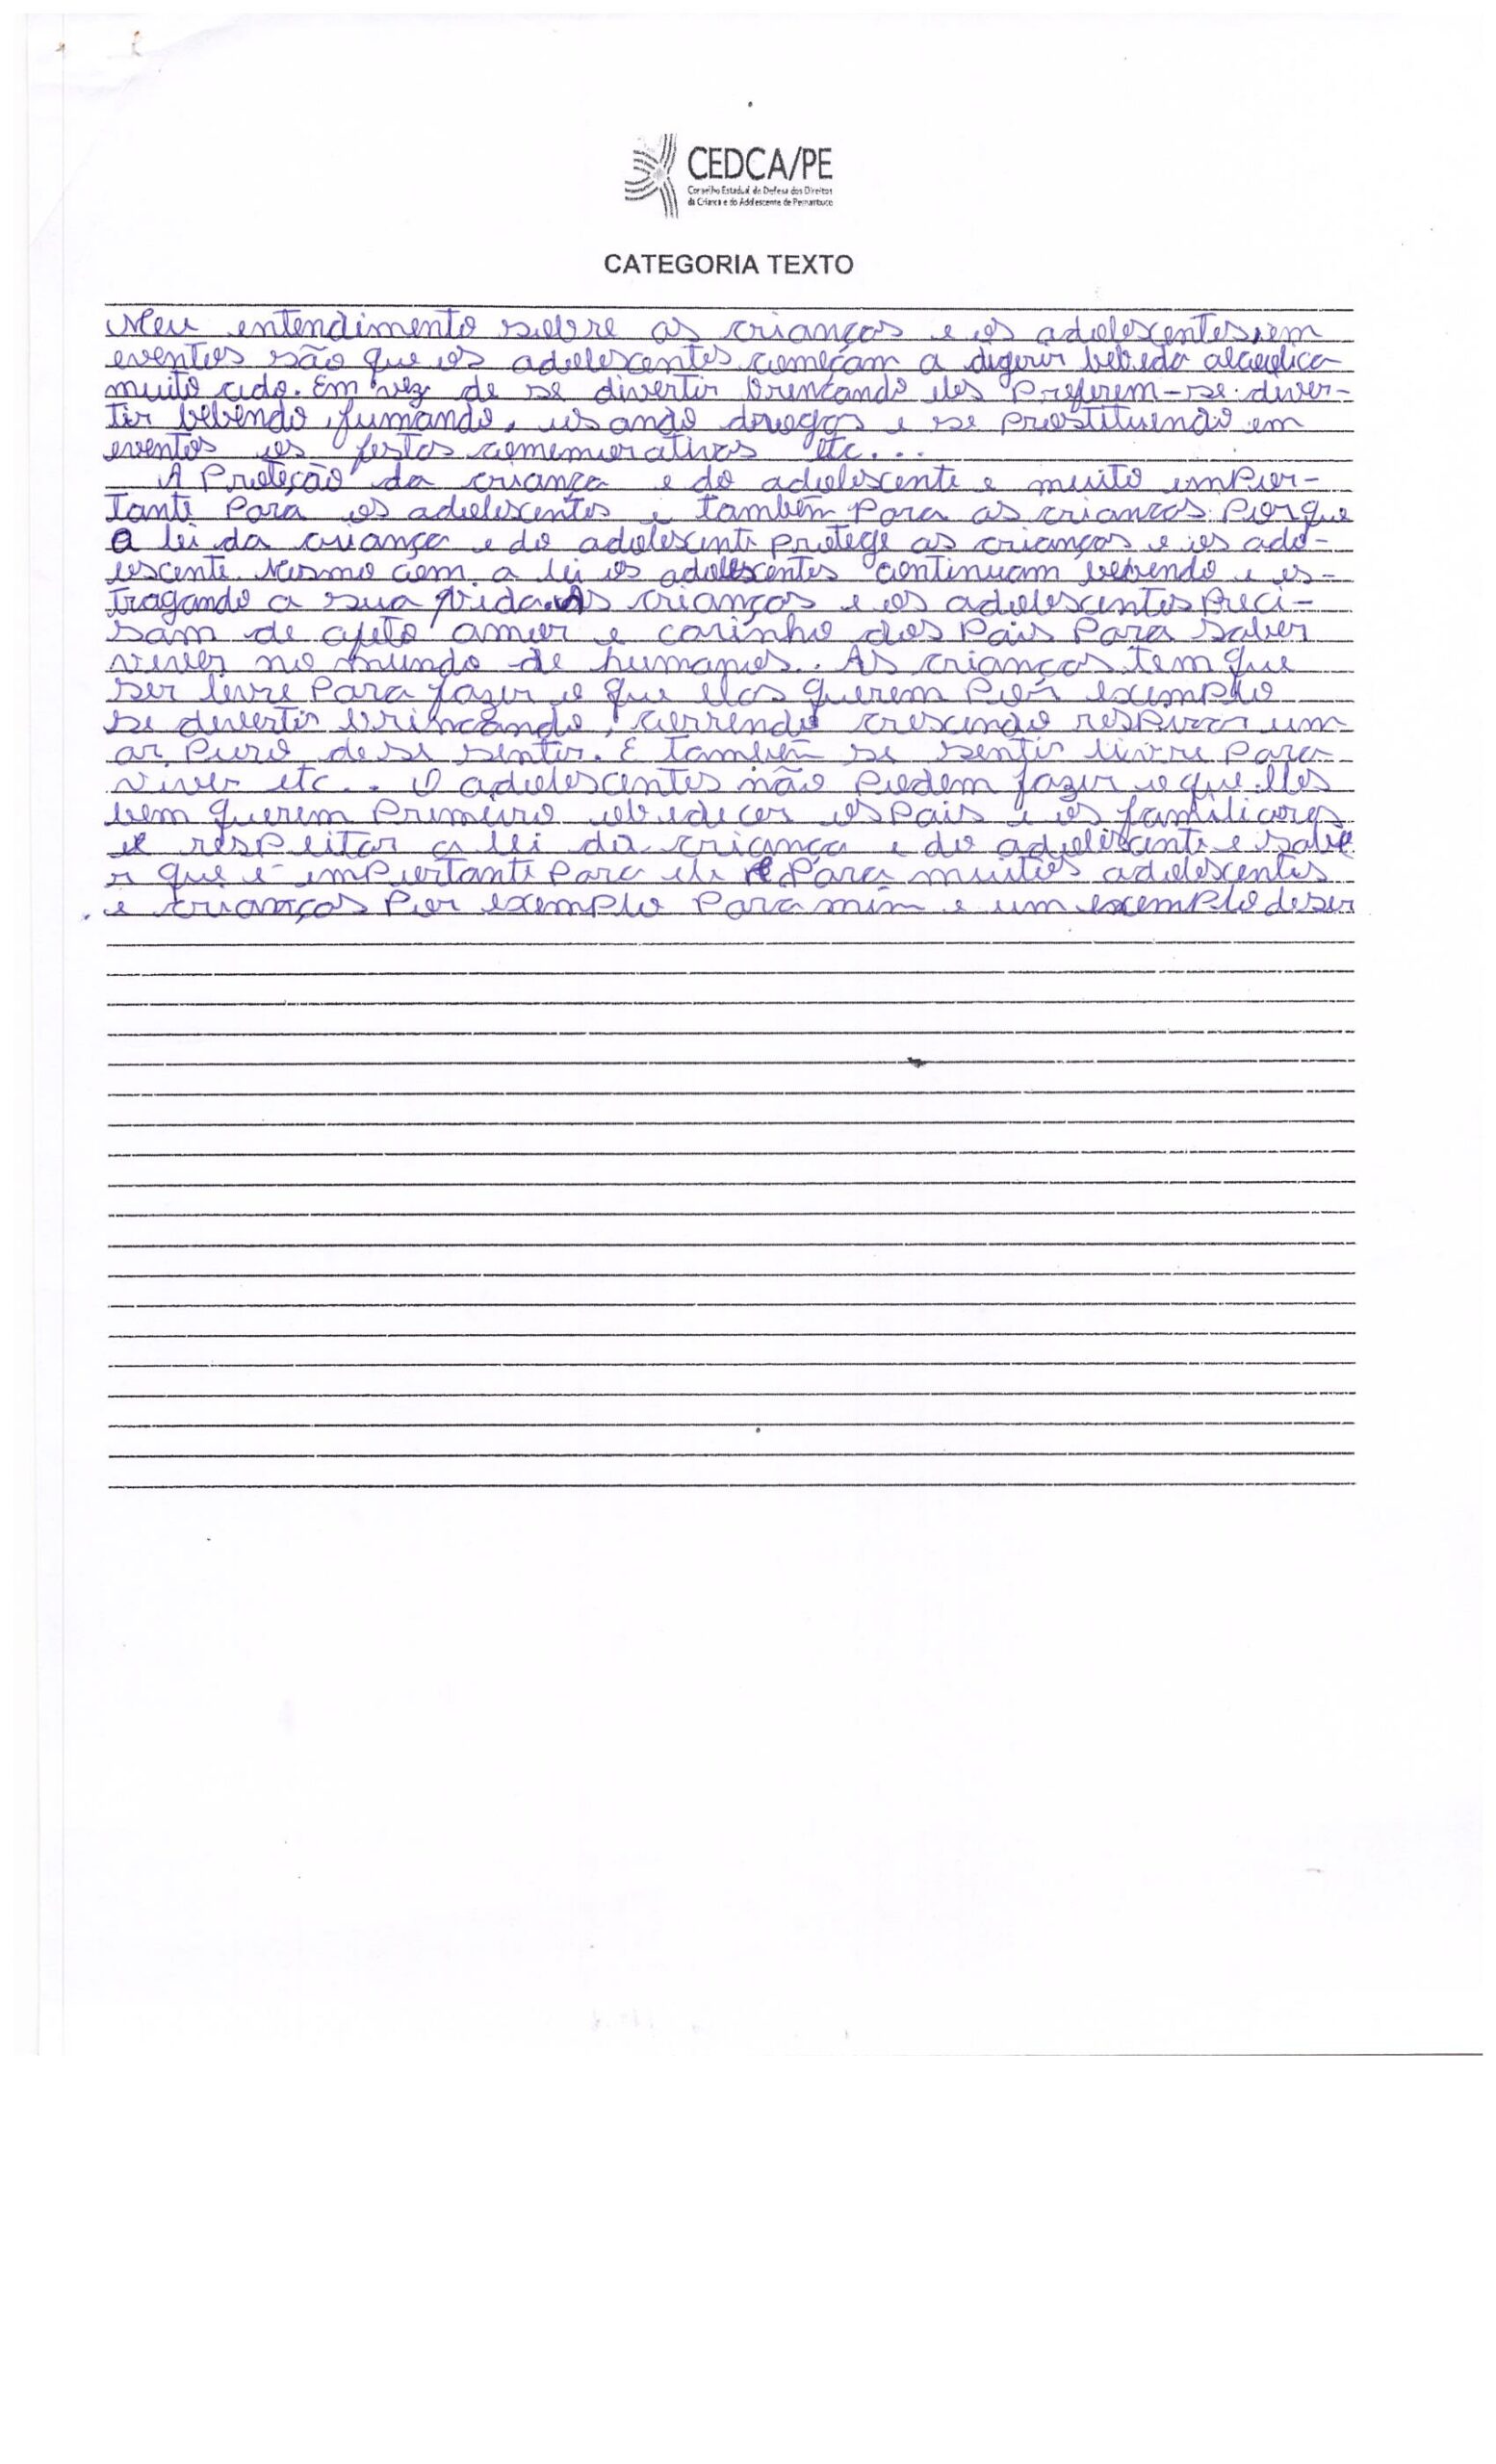 CEDCA/PE
Conselho Estadual de Defesa dos Direitos
da Criança e do Adolescente de Pernambuco
CATEGORIA TEXTO
Meu entendimento sobre as crianças e os adolescentes, em
eventos são que os adolescentes começam a digerir bebida alcoolica
muito cedo. Em vez de se divertir brincando eles preferem-se diver-
tir bebendo, fumando, usando drogas e se prostituindo em
eventos os festas comemorativas etc...
A Proteção da criança e do adolescente e muito impor-
tante para os adolescentes e também para as crianças porque
a lei da criança e do adolescente protege as crianças e os ado-
lescente. Mesmo com a lei os adolescentes continuam bebendo e es-
tragando a sua vida. As crianças e os adolescentes preci-
sam de afeto amor e carinho dos pais para saber
viver no mundo de humanos.. As crianças tem que
ser livre para fazer o que elas querem por exemplo
se divertir brincando, correndo crescendo respirar um
ar puro de se sentir. E também se sentir livre para
viver etc.. O adolescentes não podem fazer o que eles
bem querem primeiro obedecer os pais e os familiares
e respeitar a lei da criança e do adolescente e sabe
r que é importante para ele e para muitos adolescentes
e crianças por exemplo para mim e um exemplo de ser